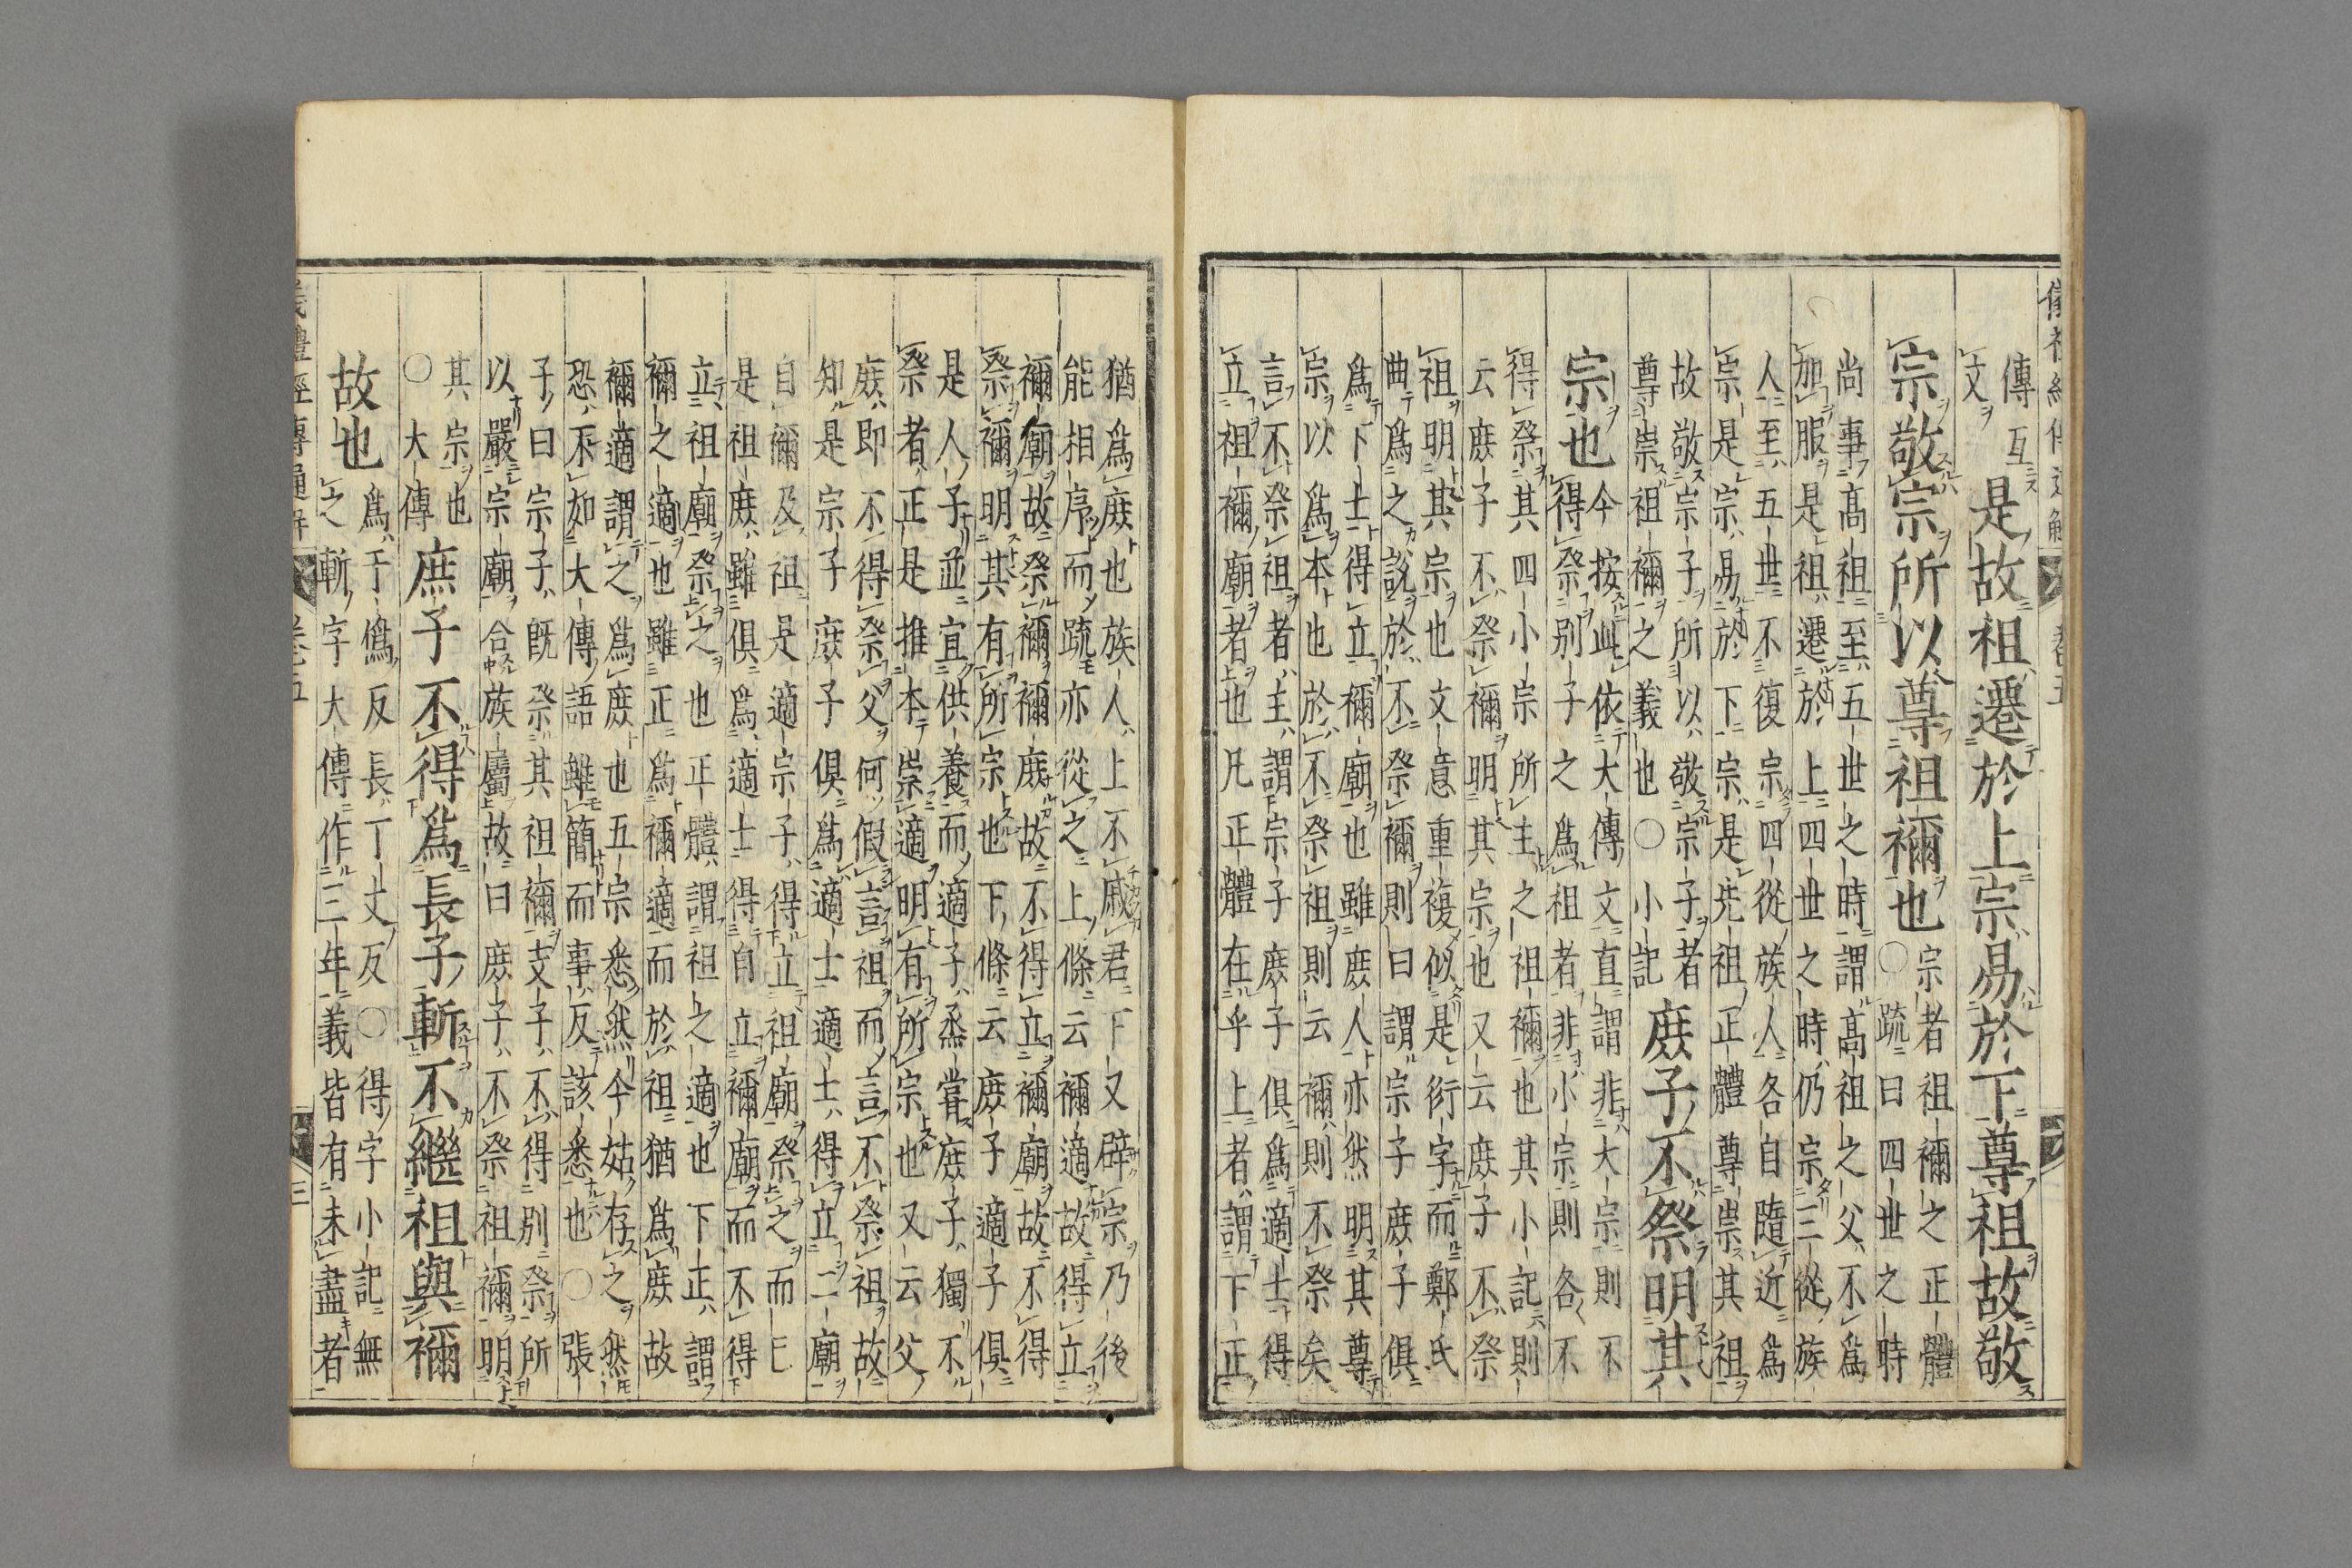 傳互
文
是故祖遷於上宗易於下尊祖故敬
宗敬宗所以尊祖禰也
宗者祖禰之正體
○疏曰四世之時
尚事髙祖至五世之時謂髙祖之父不爲
加服是祖遷於上四世之時仍宗三從族
人至五世不復宗四從族人各自隨近爲
宗是宗易於下宗是先祖正體尊崇其祖
故敬宗子所以敬宗子者
尊崇祖禰之義也○小記
庶子不祭明其
宗也
今按此依大傳文直謂非大宗則不
得祭别子之爲祖者非小宗則各不
得祭其四小宗所主之祖禰也其小記則
云庶子不祭禰明其宗也又云庶子不祭
祖明其宗也文意重複似是衍字而鄭氏
曲爲之說於不祭禰則曰謂宗子庶子俱
爲下士得立禰廟也雖庶人亦然明其尊
宗以爲本也於不祭祖則云禰則不祭矣
言不祭祖者主謂宗子庶子俱爲適士得
立祖禰廟者也凡正體在乎上者謂下正
猶爲庶也族人上不戚君下又辟宗乃後
能相序而疏亦從之上條云禰適故得立
禰廟故祭禰禰庶故不得立禰廟故不得
祭禰明其有所宗也下條云庶子適子俱
是人子並宜供養而適子烝嘗庶子獨不
祭者正是推本崇適明有所宗也又云父
庶即不得祭父何假言祖而言不祭祖故
知是宗子庶子俱爲適士適士得立二廟
自禰及祖是適宗子得立祖廟祭之而已
是祖庶雖俱爲適士得自立禰廟而不得
立祖廟祭之也正體謂祖之適也下正謂
禰之適也雖正爲禰適而於祖猶爲庶故
禰適謂之爲庶也五宗悉然今姑存之然
恐不如大傳語雖簡而事反該悉也○張
子曰宗子既祭其祖禰支子不得别祭所
以嚴宗廟合族屬故曰庶子不祭祖禰明
其宗也
○大傳
庶子不得爲長子斬不繼祖與禰
故也
爲于僞反長丁丈反○得字小記無
之斬字大傳作三年義皆有未盡者
禮經傳通解 卷五 三